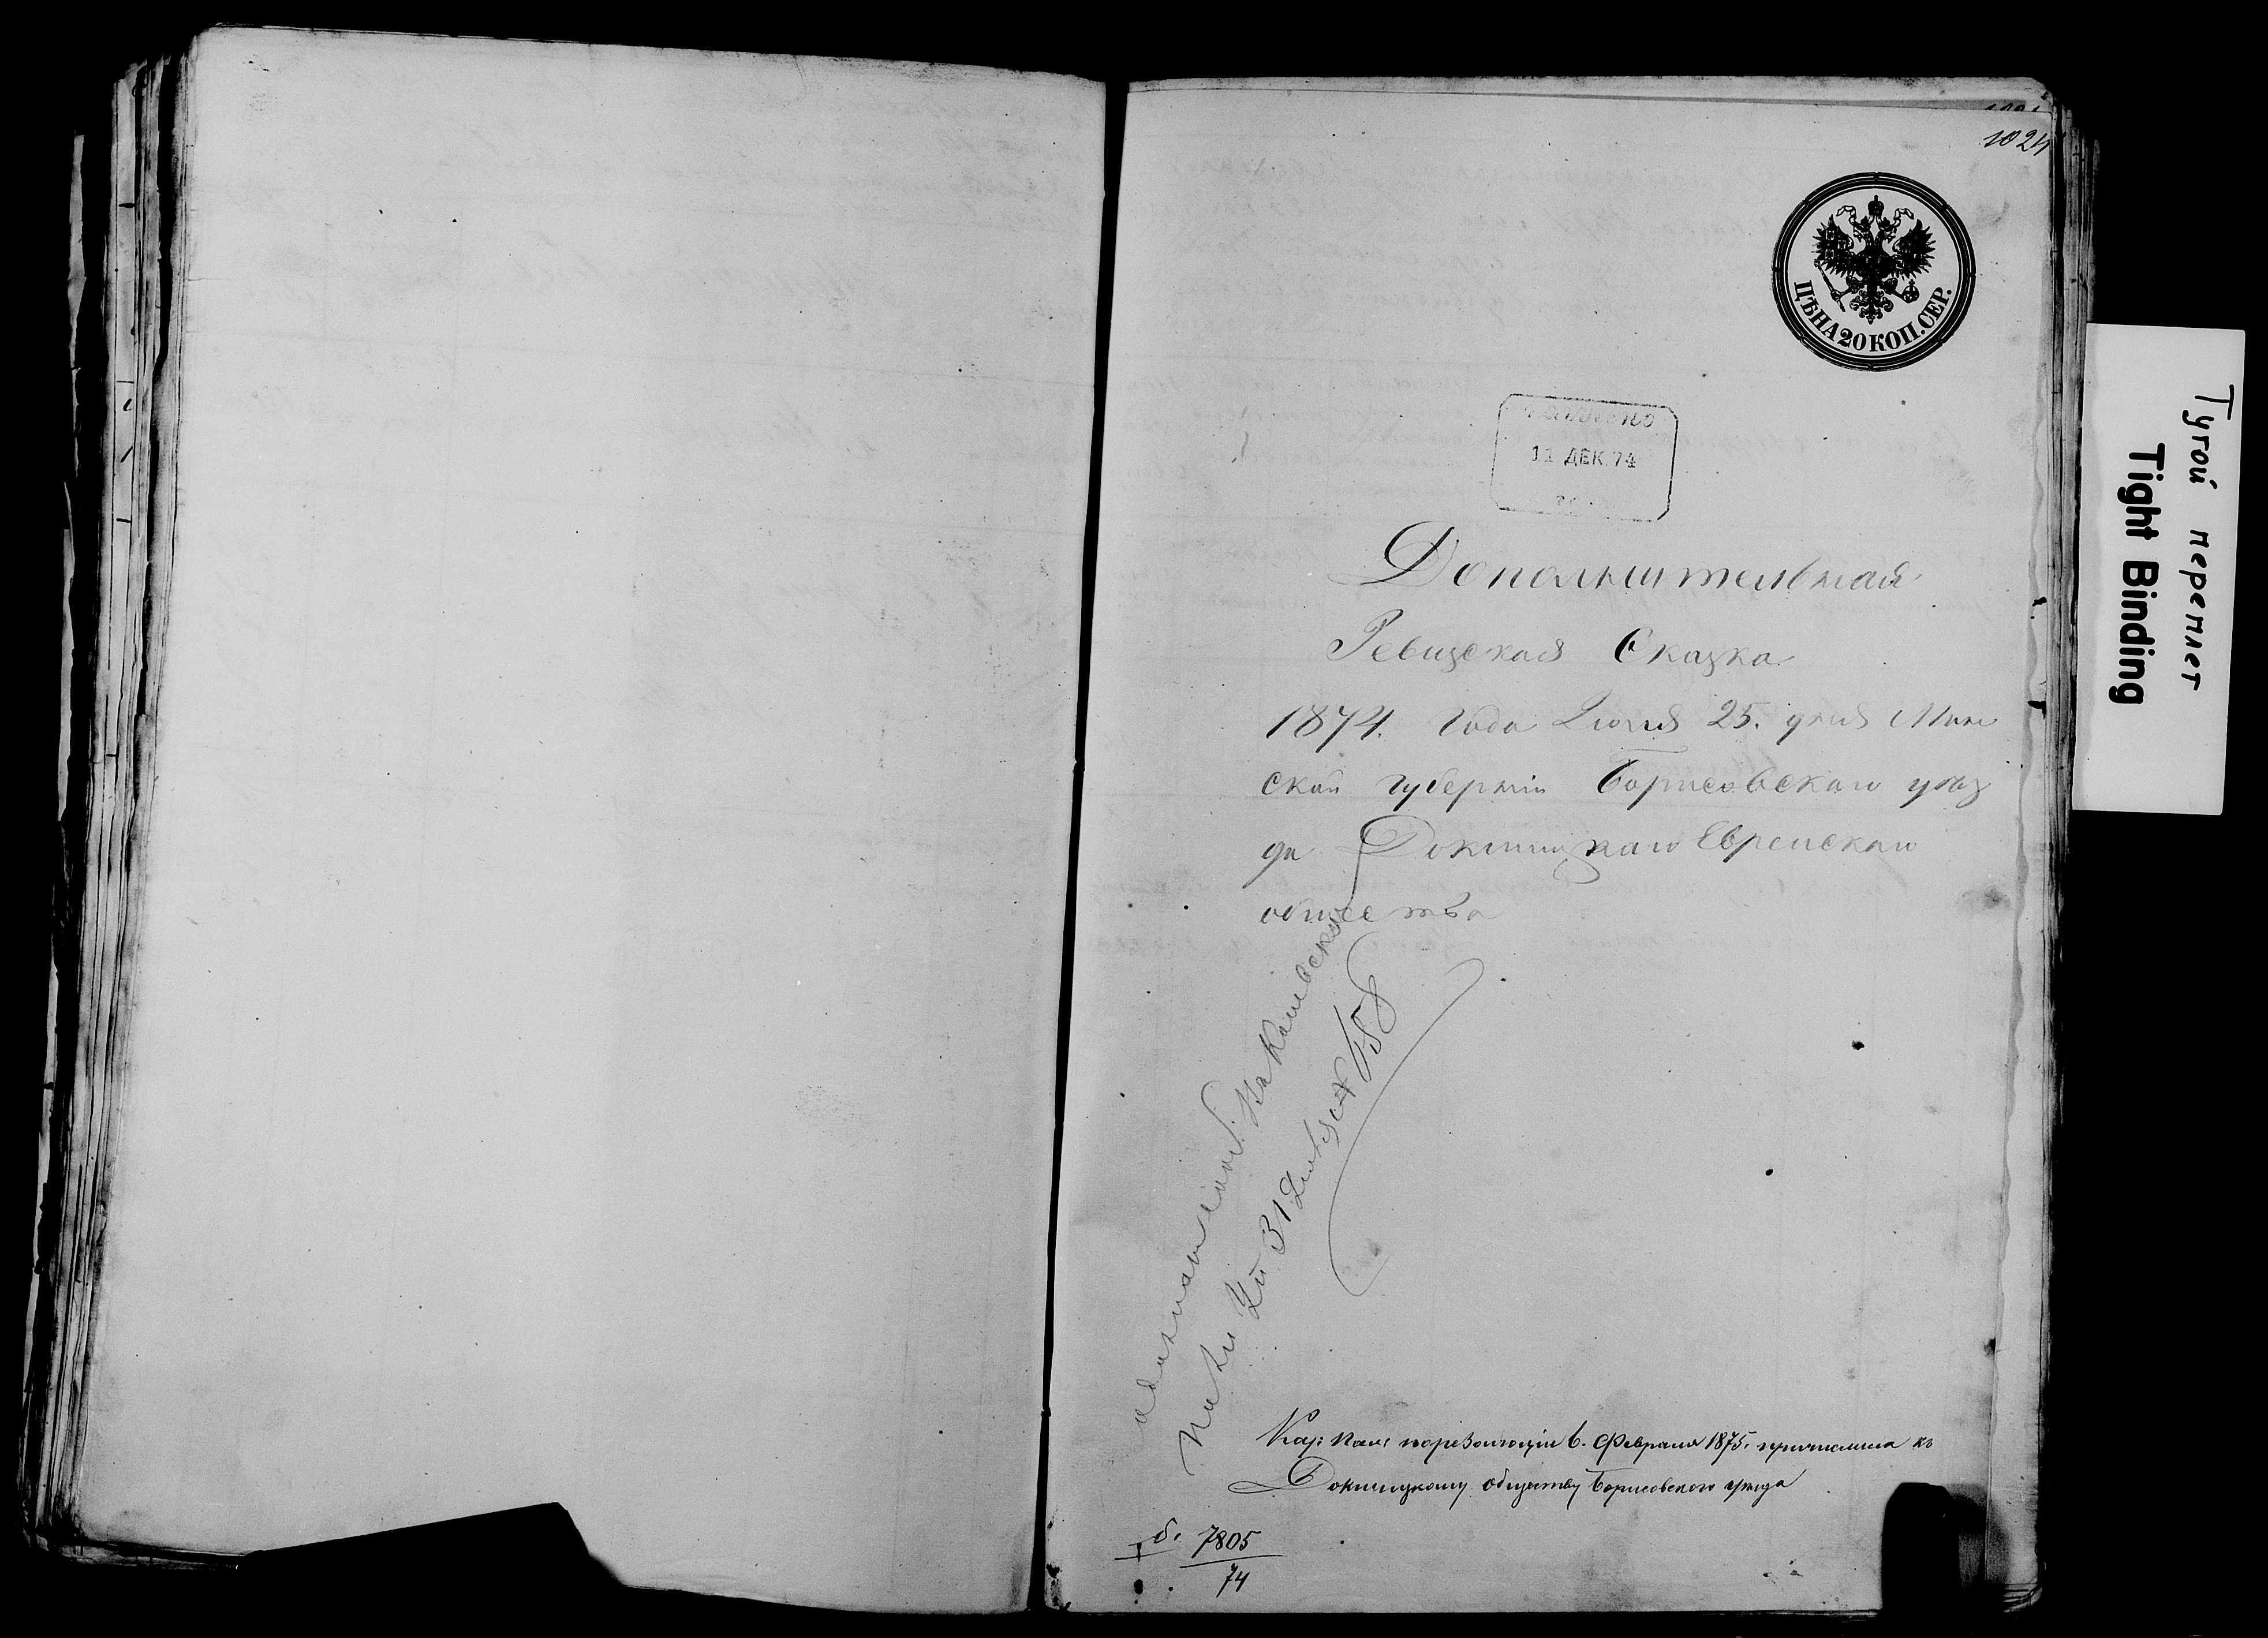 1024
ЦѢНА 20 КОП. СЕР.
ПОЛУЧЕНО
11 ДЕК. 74
Дополнительная
Ревизская Сказка
1874. Года Июля 25. дня Мин
ской губерніи Борисовскаго уѣз
да Докшицкаго Еврейскаго
общества
31
Каз: Пал: по резолюціи 6. Февраля 1875. причислила къ
Докшицкому обществу Борисовскаго уѣзда
7805
74
Тугой переплет
Tight Binding